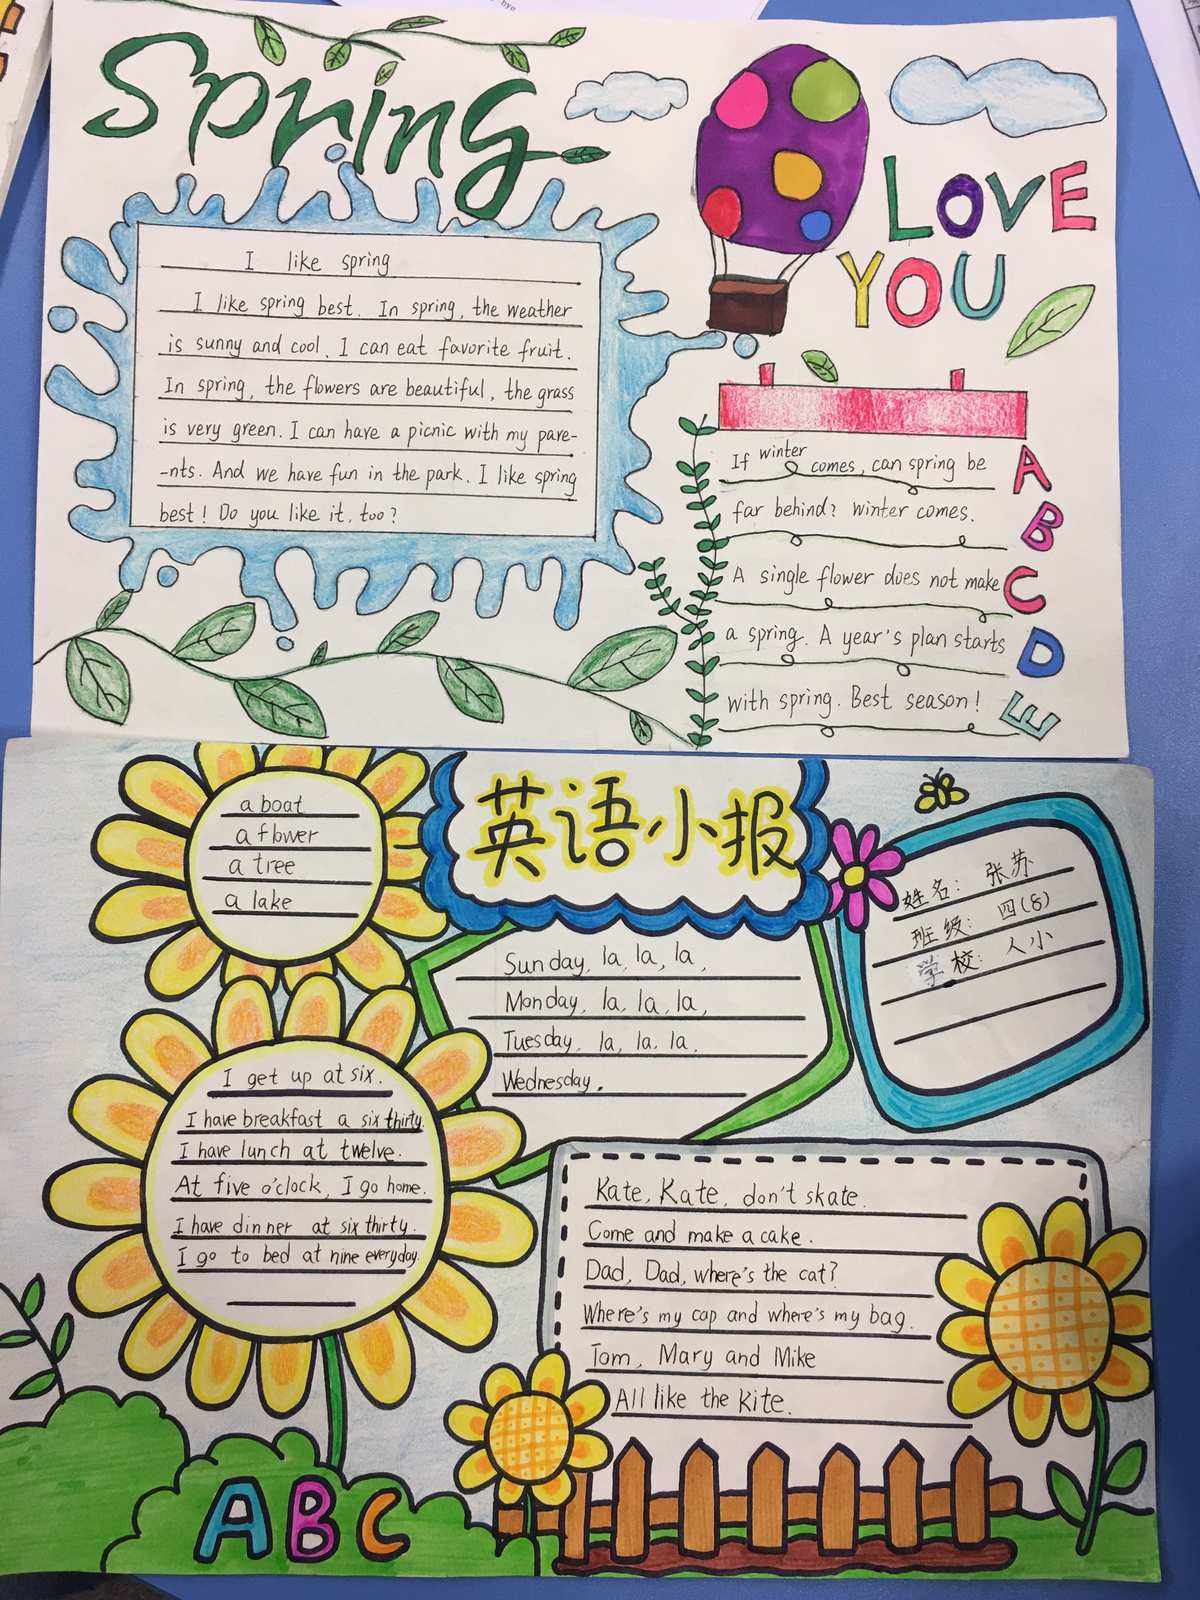 Spring
LOVE
YOU
I like spring
I like spring best. In spring, the weather
is sunny and cool. I can eat favorite fruit.
In spring, the flowers are beautiful, the grass
is very green. I can have a picnic with my pare-
-nts. And we have fun in the park. I like spring
best! Do you like it, too?
If winter comes, can spring be
far behind? winter comes.
A single flower does not make
a spring. A year's plan starts
with spring. Best season!
A
B
C
D
E
英语小报
a boat
a flower
a tree
a lake
Sunday, la, la, la,
Monday, la, la, la,
Tuesday, la, la, la.
Wednesday.
姓名: 张苏
班级: 四(8)
学校: 人小
I get up at six.
I have breakfast a six thirty.
I have lunch at twelve.
At five o'clock, I go home.
I have dinner at six thirty.
I go to bed at nine everyday.
Kate, Kate, don't skate.
Come and make a cake.
Dad, Dad, where's the cat?
Where's my cap and where's my bag.
Tom, Mary and Mike
All like the kite.
ABC